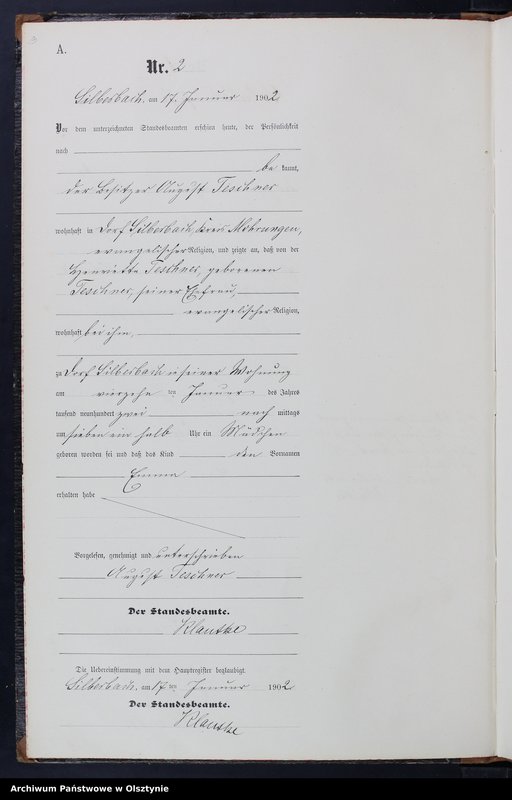 A.
Nr. 2
Silberbach, am 17. Januar 1902
Vor dem unterzeichneten Standesbeamten erschien heute, der Persönlichkeit
nach
be kannt,
der Besitzer August Teschner
wohnhaft in Dorf Silberbach, Kreis Mohrungen,
evangelischer Religion, und zeigte an, daß von der
Henriette Teschner, geborenen
Teschner, seiner Ehefrau,
evangelischer Religion,
wohnhaft bei ihm,
zu Dorf Silberbach in seiner Wohnung
am vierzehn ten Januar des Jahres
tausend neunhundert zwei nach mittags
um sieben ein halb Uhr ein Mädchen
geboren worden sei und daß das Kind den Vornamen
Emma
erhalten habe
Vorgelesen, genehmigt und unterschrieben
August Teschner
Der Standesbeamte.
Klautke
Die Uebereinstimmung mit dem Hauptregister beglaubigt.
Silberbach, am 17 ten Januar 1902
Der Standesbeamte.
Klautke
Archiwum Państwowe w Olsztynie